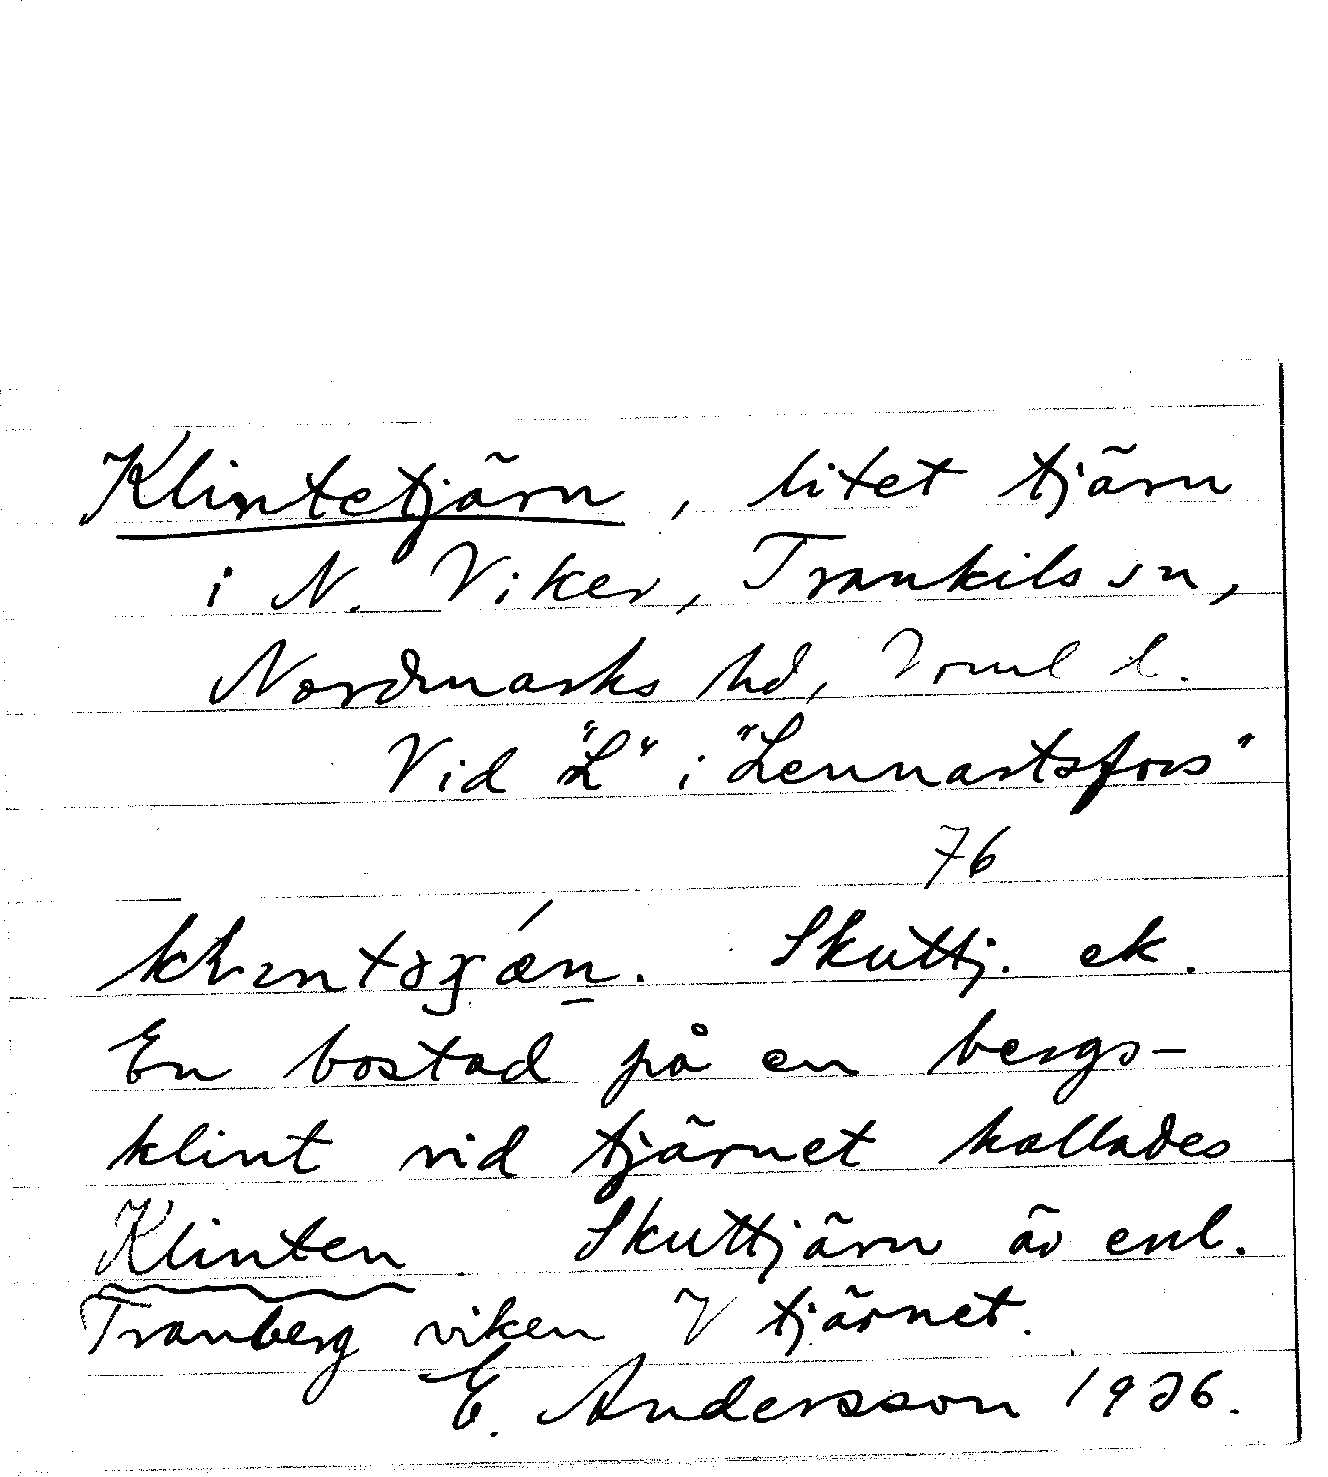 Klintetjärn, litet tjärn
i N. Viker, Trankils sn,
Nordmarks hd, Vrml l.
Vid "L" i "Lennartsfors"
76
Skuttj. ek.
En bostad på en bergs-
klint vid tjärnet kallades
Klinten. Skuttjärn är enl.
Tranberg viken V tjärnet.
E. Andersson 1936.